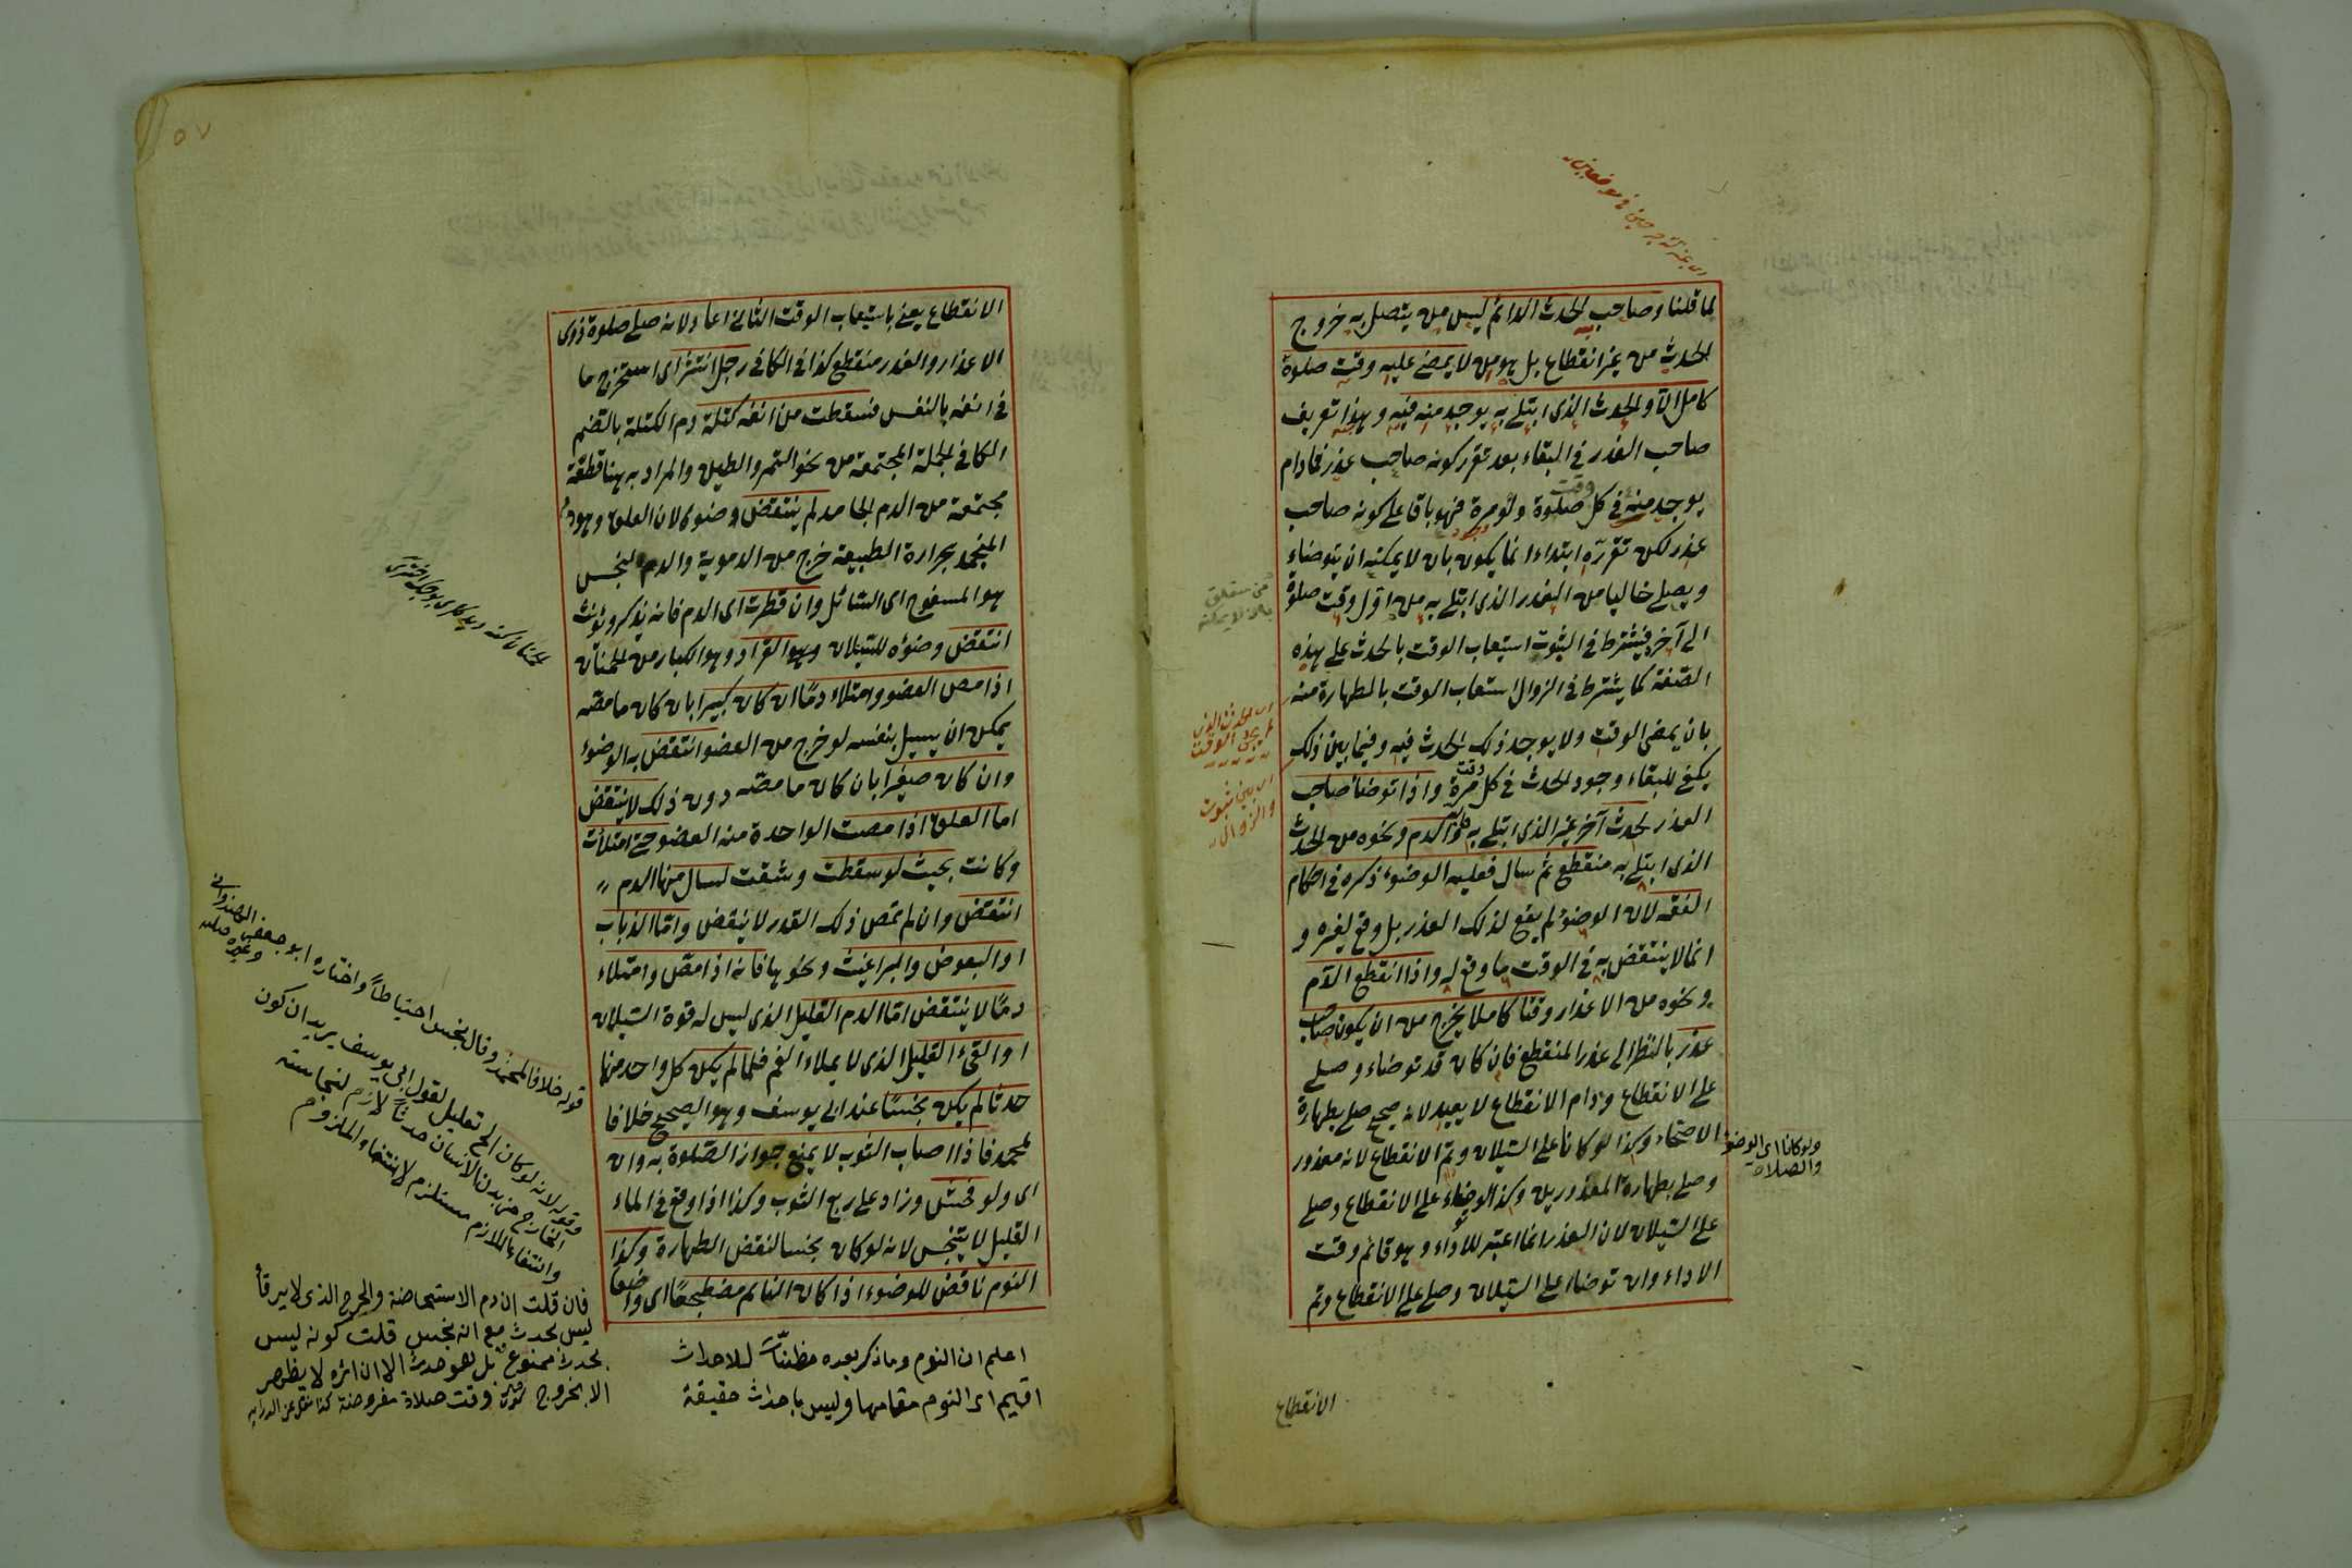 لما قلنا وصاحب الحدث الدائم ليس من يتصل به خروج
الحدث من غير انقطاع بل هو من لا يمضى عليه وقت صلوة
كامل الا والحدث الذى ابتلى به يوجد منه فيه وهذا تعريف
صاحب العذر فى البقاء بعد تقرر كونه صاحب عذر فما دام
يوجد منه فى كل وقت صلوة ولو مرة فهو باق على كونه صاحب
عذر لكن تقرره ابتداء انما يكون بان لا يمكنه ان يتوضاء
ويصلى خاليا من العذر الذى ابتلى به من اول وقت صلوة
الى آخره فيشترط فى الثبوت استيعاب الوقت بالحدث على هذه
الصفة كما يشترط فى الزوال استيعاب الوقت بالطهارة منه
بان يمضى الوقت ولا يوجد ذلك الحدث فيه وفيما بين ذلك
يكفى للبقاء وجود الحدث فى كل وقت مرة واذا توضأ صاحب
العذر لحدث آخر غير الذى ابتلى به والدم ونحوه من الحدث
الذى ابتلى به منقطع ثم سال فعليه الوضوء ذكره فى احكام
الفقه لان الوضوء لم يقع لذلك العذر بل وقع لغيره و
انما لا ينتقض به فى الوقت ما وقع له واذا انقطع الدم
ونحوه من الاعذار وقتا كاملا يخرج من ان يكون صاحب
عذر بالنظر الى عذر المنقطع فان كان قد توضاء وصلى
على الانقطاع ودام الانقطاع لا يعيد لانه صحيح صلى بطهارة
الاصحاء وكذا لو كانا على السيلان وتم الانقطاع لانه معذور
وصلى بطهارة المعذورين وكذا لو توضاء على الانقطاع وصلى
على السيلان لان العذر انما اعتبر للاداء وهو قائم وقت
الاداء وان توضاء على السيلان وصلى على الانقطاع وتم
ولو كانا اى الوضوء
والصلاة
اى الحدث الذى
اى بين ثبوت
والزوال
الانقطاع
٥٧
الانقطاع يعنى باستيعاب الوقت الثانى اعاد لانه صلى صلوة ذوى
الاعذار والعذر منقطع كذا فى الكافى رجل انتثر اى استخرج ما
فى انفه بالنفس فسقطت من انفه كتلة دم الكتلة بالضم
الكاف الجملة المجتمعة من نحو التمر والطين والمراد به هنا قطعة
مجتمعة من الدم الجامد لم ينتقض وضوئ لان العلق وهو دم
المنجمد بحرارة الطبيعة خرج من الدموية والدم النجس
هو المسفوح اى السائل وان قطرت اى الدم فانه يذكر ويؤنث
انتقض وضوءه للسيلان وهو القراد وهو الكبار من الحمنان
اذا مص العضو وامتلاء دما ان كان كبيرا بان كان ما مصه
يمكن ان يسيل بنفسه لو خرج من العضو انتقض به الوضوء
وان كان صغيرا بان كان ما مصه دون ذلك لا ينتقض
اما العلق اذا مصت الواحدة منه العضو حتى امتلأت
وكانت بحيث لو سقطت وشقت لسال منها الدم
انتقض وان لم تمص ذلك القدر لا ينقض واما الذباب
او البعوض والبراغيث ونحوها فانه اذا مص وامتلاء
دما لا ينتقض اما الدم القليل الذى ليس له قوة السيلان
او القئ القليل الذى لا يملاء الفم فلما لم يكن كل واحد منهما
حدثا لم يكن نجسا عند ابى يوسف وهو الصحيح خلافا
لمحمد فاذا اصاب الثوب لا يمنع جواز الصلوة به وان
اى ولو فحش وزاد على ربع الثوب وكذا اذا وقع فى الماء
القليل لا يتنجس لانه لو كان نجسا لنقض الطهارة وكذا
النوم ناقض للوضوء اذا كان النائم مضطجعا اى واضعا
اعلم ان النوم وما ذكر بعده مظنات للاحداث
اقيم اى النوم مقامها وليس باحداث حقيقة
قوله خلافا لمحمد وقال نجس احتياطا واختاره ابو جعفر الهندوانى
وغيره
وقوله لانه لو كان الخ تعليل لقول ابى يوسف يريد ان كون
الخارج من بدن الانسان حدثا لازم لنجاسته
وانتفاء اللازم مستلزم لانتفاء الملزوم
فان قلت ان دم الاستحاضة والجرح الذى لا يرقأ
ليس بحدث مع انه نجس قلت كونه ليس
بحدث ممنوع بل هو حدث الا ان اثره لا يظهر
الا بخروج وقت صلاة مفروضة كذا نقل عن الدراية